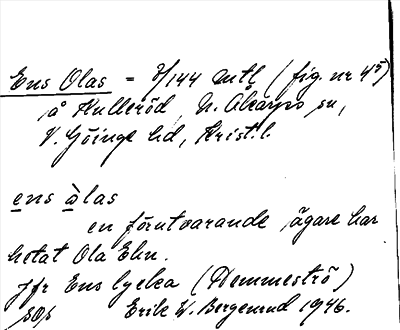 Ens Olas = 7/144 mtl (fig. nr 45)
å Kulleröd, N. Åkarps sn,
V. Göinge hd, Krist. l.
ens òlas
en förutvarande ägare har
hetat Ola Ehn.
Jfr Ens lycka (Demmeströ)
Erik W. Bergenrud 1946.